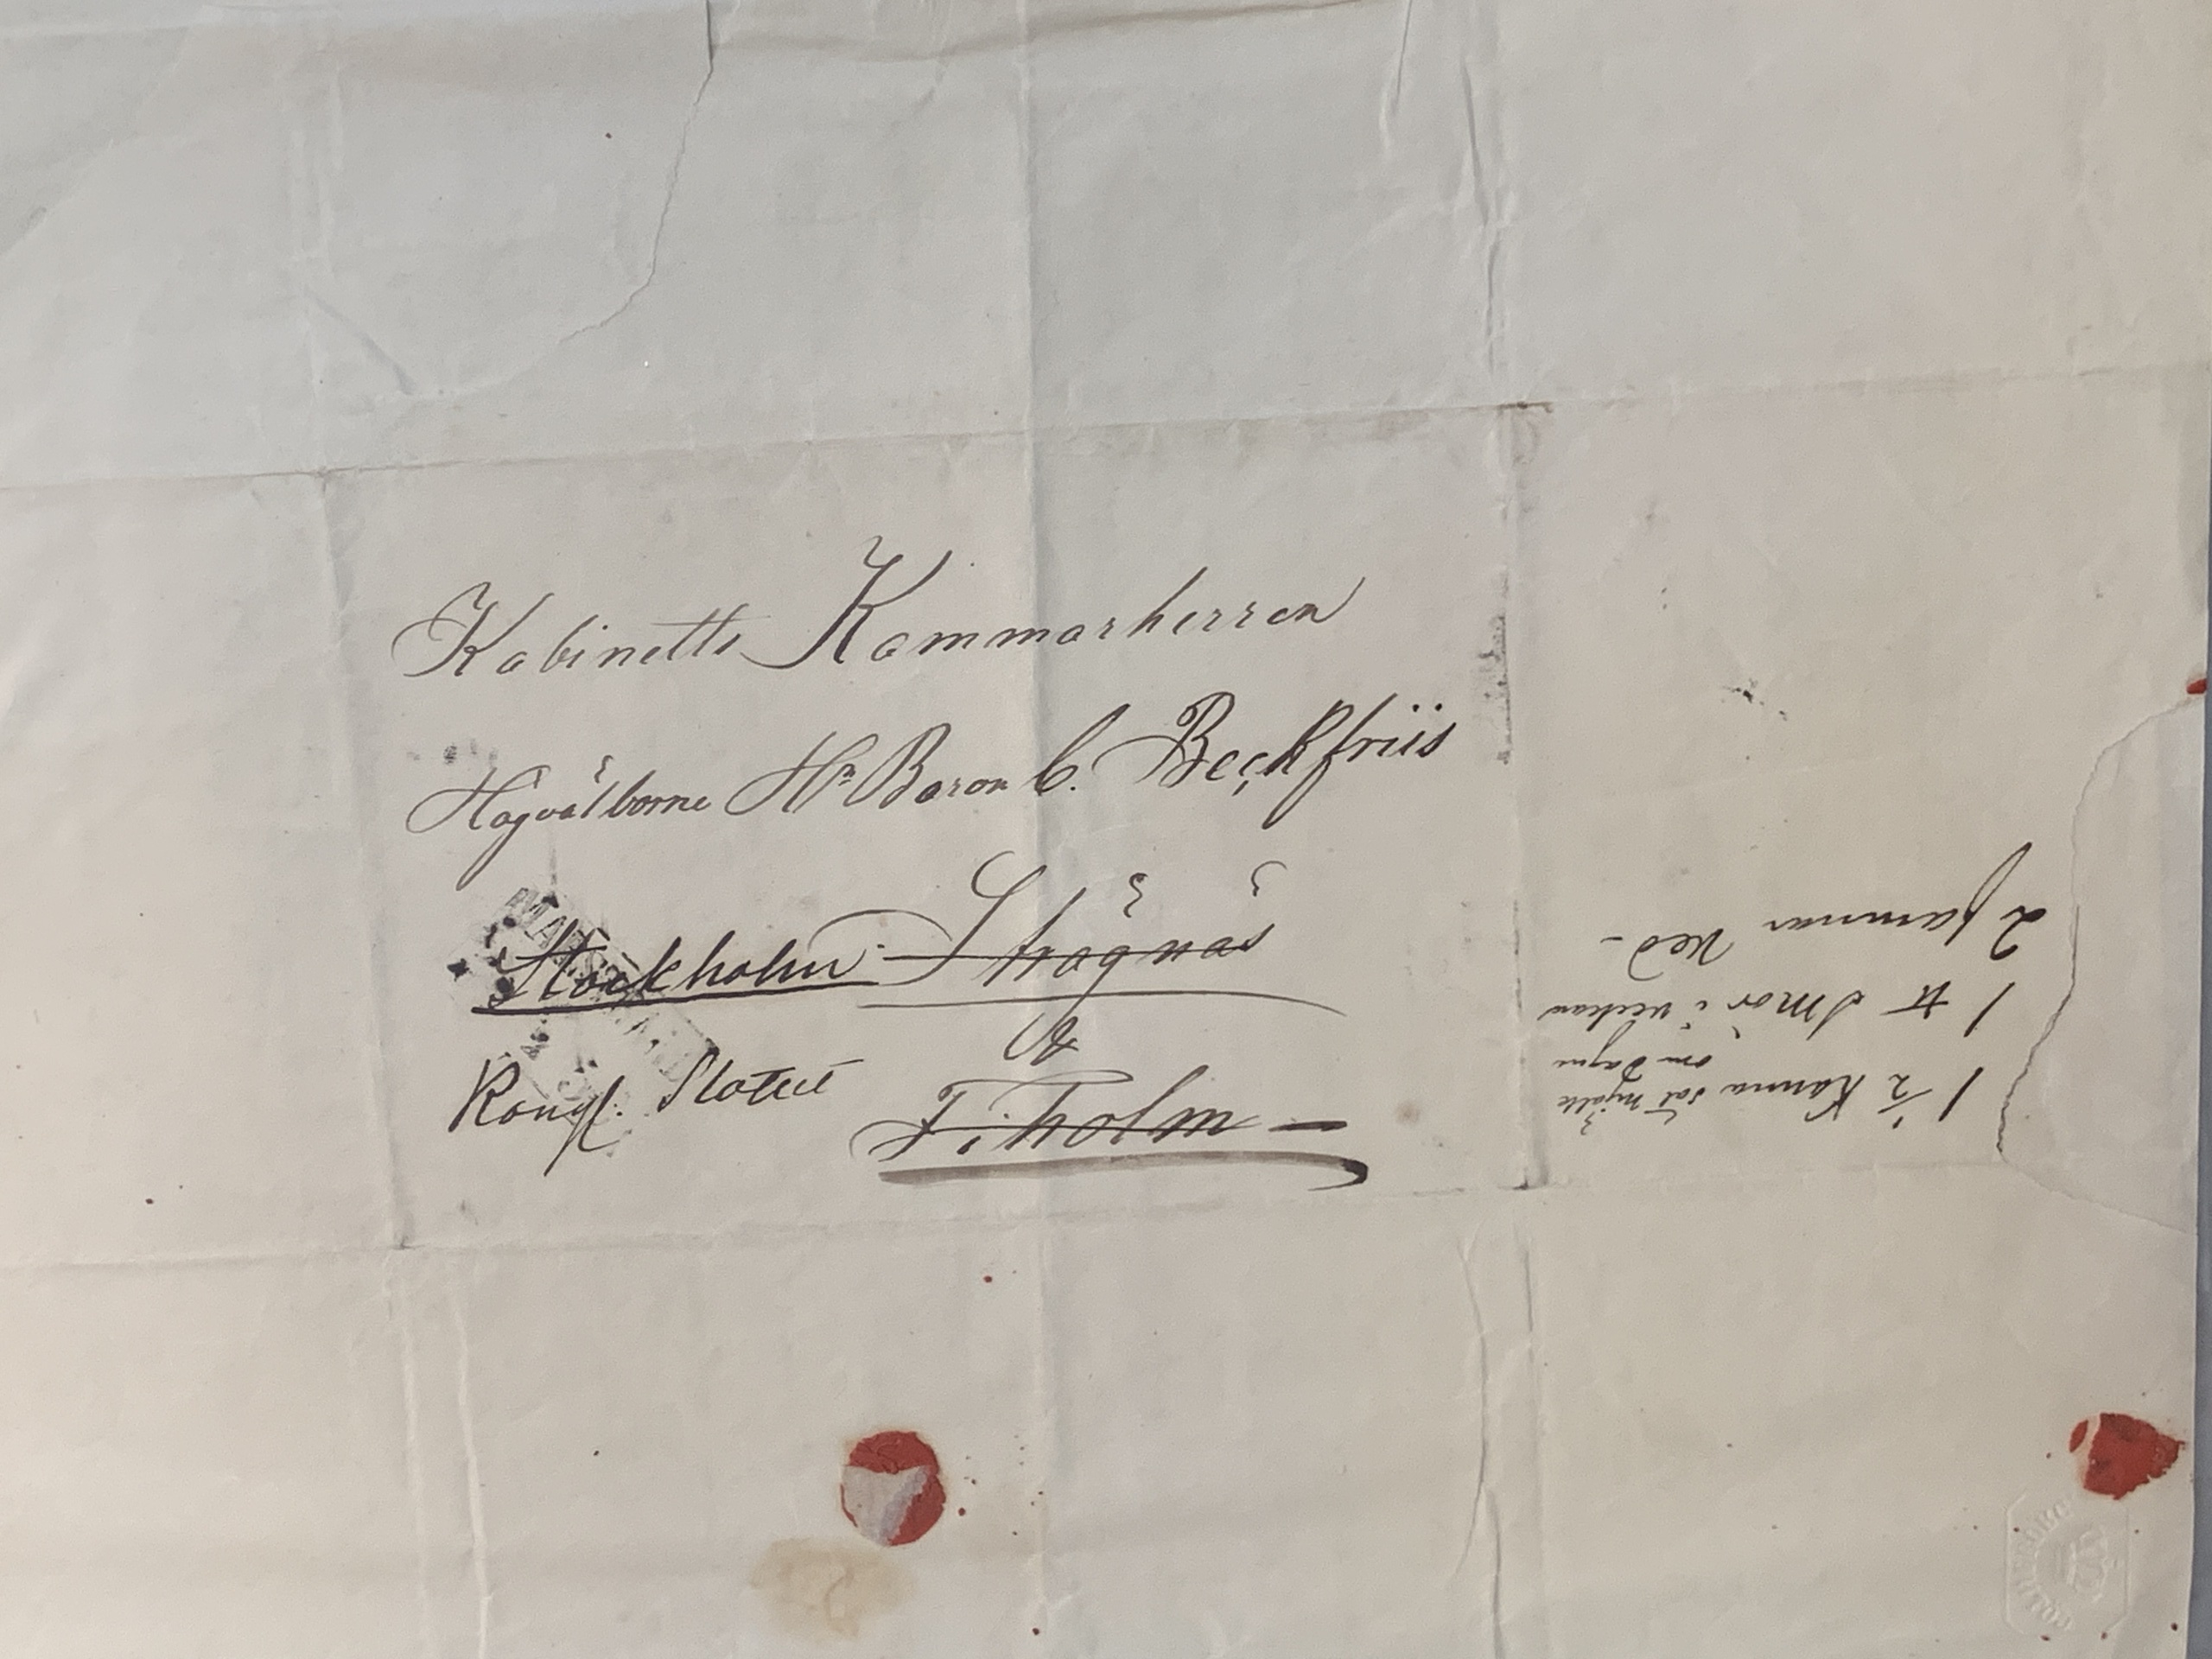 Kabinetts Kammarherren
Högvälborne Hr Baron C. Beckfriis
Stockholm Strägnäs
&
Kongl. Slottet Fiholm
1 1/2 Kanna söt mjölk
om dagen
1 ℔ Smör i veckan
2 famnar Ved